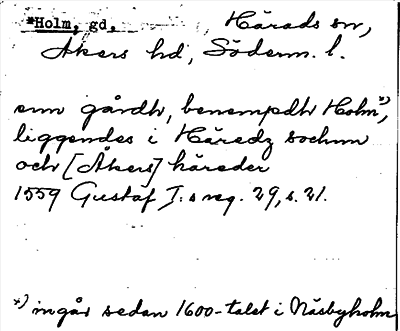 *Holm, gd. Härads sn,
Åkers hd, Söderm. l.
enn gårdh, benempdh Holm x),
liggendes i Häredz sochnn
och [Åkers] häreder
1559 Gustaf I:s reg. 29, s. 21.
x) ingår sedan 1600-talet i Näsbyholm